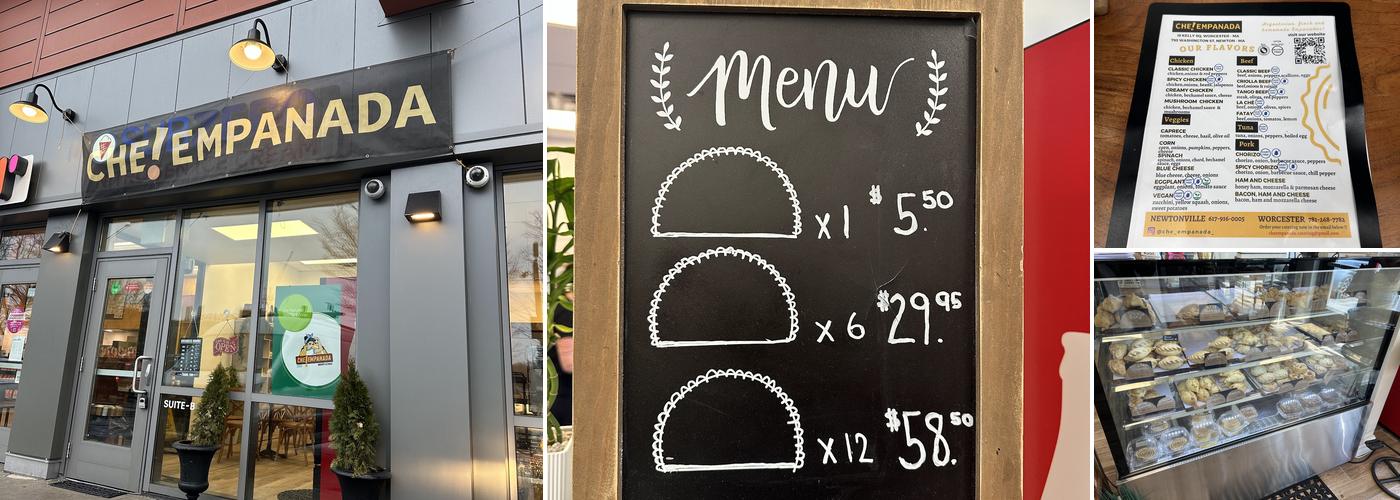 CHE!EMPANADA
OPEN
CHE!EMPANADA
SUITE-B
Menu
x1 $5.50
x6 $29.95
x12 $58.50
CHE!EMPANADA
19 KELLY SQ, WORCESTER - MA
793 WASHINGTON ST, NEWTON - MA
visit our website
OUR FLAVORS
Chicken
CLASSIC CHICKEN
chicken, onions & red peppers
SPICY CHICKEN
chicken, onions, beans, jalapenos
CREAMY CHICKEN
chicken, bechamel sauce, cheese
MUSHROOM CHICKEN
chicken, bechamel sauce &
mushrooms
Veggies
CAPRECE
tomatoes, cheese, basil, olive oil
CORN
corn, onions, pumpkins, peppers,
cheese
SPINACH
spinach, onions, chard, bechamel
sauce, eggs
BLUE CHEESE
blue cheese, cheese, onions
EGGPLANT
eggplant, onions, tomato sauce
VEGAN
zucchini, yellow squash, onions,
sweet potatoes
Beef
CLASSIC BEEF
beef, onions, peppers, scallions, eggs
CRIOLLA BEEF
beef, onions & raisins
TANGO BEEF
steak, olives, red peppers
LA CHE
beef, onions, olives, spices
FATAY
beef, onions, tomatoes, lemon
Tuna
tuna, onions, peppers, boiled egg
Pork
CHORIZO
chorizo, onion, barbecue sauce, peppers
SPICY CHORIZO
chorizo, onion, barbecue sauce, chili pepper
HAM AND CHEESE
honey ham, mozzarella & parmesan cheese
BACON, HAM AND CHEESE
bacon, ham and mozzarella cheese
NEWTONVILLE 617-916-0005 WORCESTER 781-268-7782
@che_empanada_
Order your catering now in the email below!!